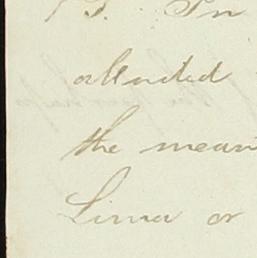 In
attended
the mean
Lima or